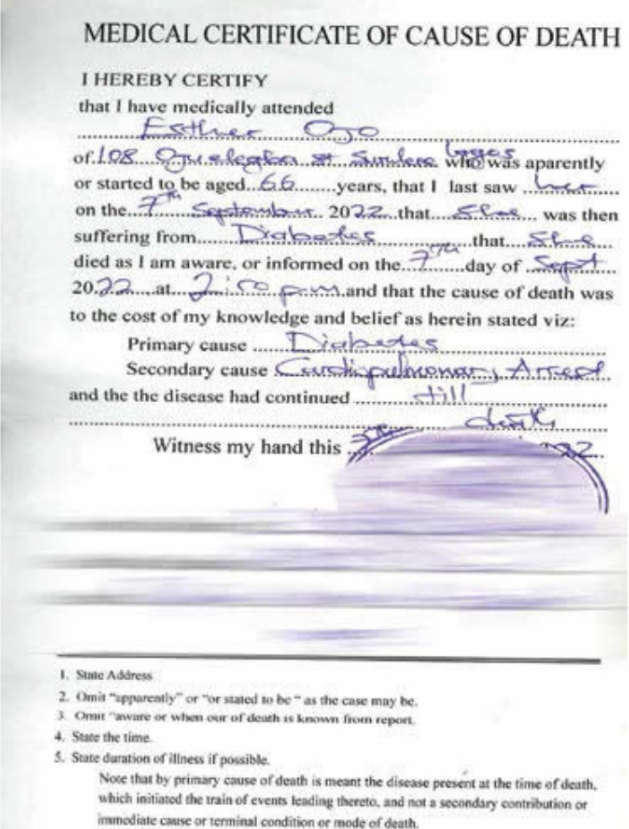 MEDICAL CERTIFICATE OF CAUSE OF DEATH
I HEREBY CERTIFY
that I have medically attended
Esther Ojo
of 108 Ojuelegba st Surulere Lagos who was aparently
or started to be aged 66 years, that I last saw her
on the 7th September 2022 that She was then
suffering from Diabetes that She
died as I am aware, or informed on the 7th day of Sept
20 22 at 2:50 p.m and that the cause of death was
to the cost of my knowledge and belief as herein stated viz:
Primary cause Diabetes
Secondary cause Cardiopulmonary Arrest
and the the disease had continued till
death
Witness my hand this
1. State Address
2. Omit "apparently" or "or stated to be " as the case may be.
3. Omit "aware or when our of death is known from report.
4. State the time.
5. State duration of illness if possible.
Note that by primary cause of death is meant the disease present at the time of death,
which initiated the train of events leading thereto, and not a secondary contribution or
immediate cause or terminal condition or mode of death.